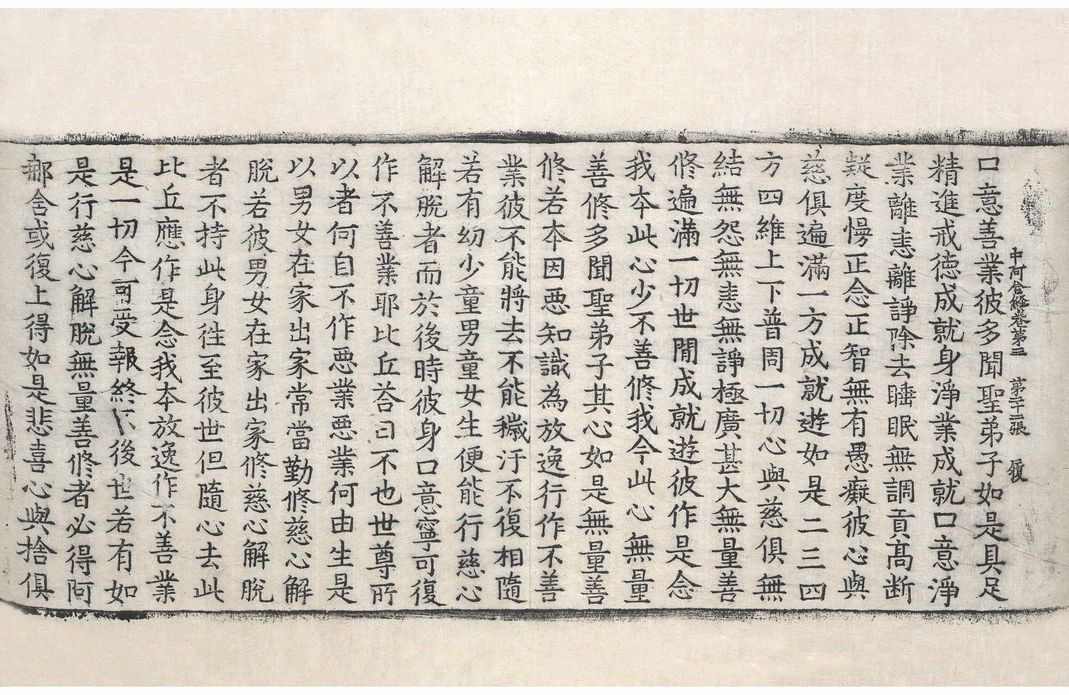 中阿含経巻第三 第二十二張 履
口意善業彼多聞聖弟子如是具足
精進戒徳成就身淨業成就口意淨
業離恚離諍除去睡眠無調貢髙断
疑度慢正念正智無有愚癡彼心與
慈俱遍滿一方成就遊如是二三四
方四維上下普周一切心與慈俱無
結無怨無恚無諍極廣甚大無量善
修遍滿一切世間成就遊彼作是念
我本此心少不善修我今此心無量
善修多聞聖弟子其心如是無量善
修若本因惡知識為放逸行作不善
業彼不能將去不能穢汙不復相隨
若有幼少童男童女生便能行慈心
解脫者而於後時彼身口意寧可復
作不善業耶比丘荅曰不也世尊所
以者何自不作惡業惡業何由生是
以男女在家出家常當勤修慈心解
脫若彼男女在家出家修慈心解脫
者不持此身往至彼世但隨心去此
比丘應作是念我本放逸作不善業
是一切今可受報終不後世若有如
是行慈心解脫無量善修者必得阿
那含或復上得如是悲喜心與捨俱